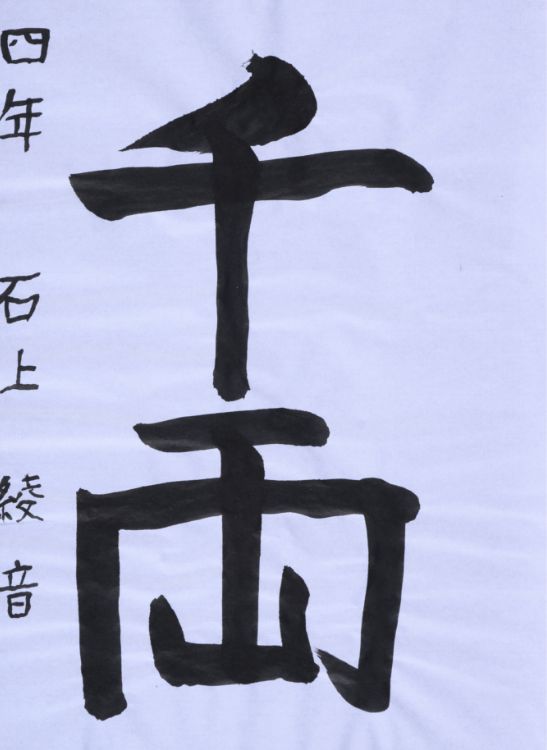 千両
四年 石上 綾音